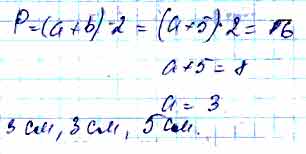 P=(a+b)·2=(a+5)·2=16
a+5=8
a=3
3 см, 3 см, 5 см.